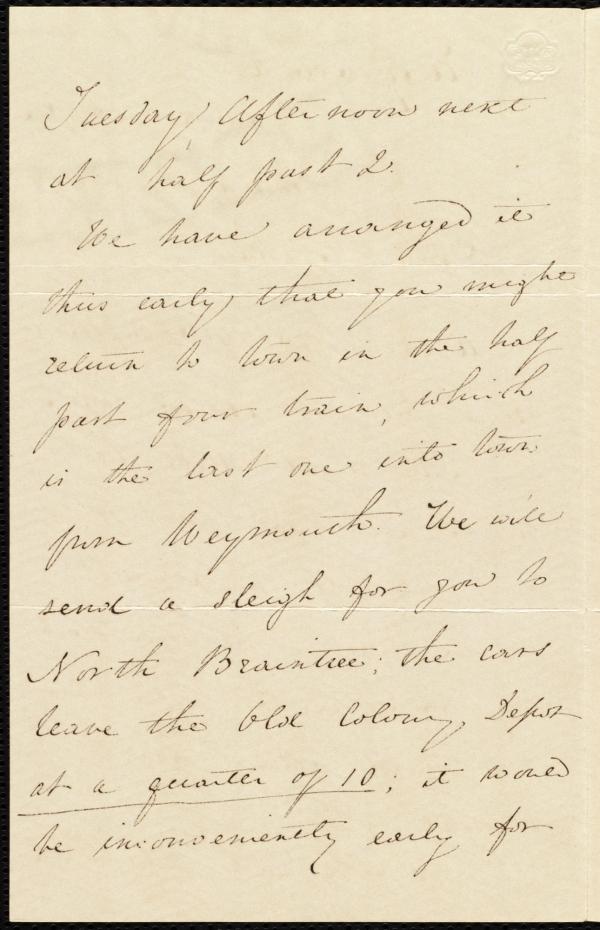 Tuesday, Afternoon next
at half past 2.
We have arranged it
thus early, that you might
return to town in the half
past four train, which
is the last one into town
from Weymouth. We will
send a sleigh for you to
North Braintree; the cars
leave the Old Colony Depot
at a quarter of 10; it would
be inconveniently early for